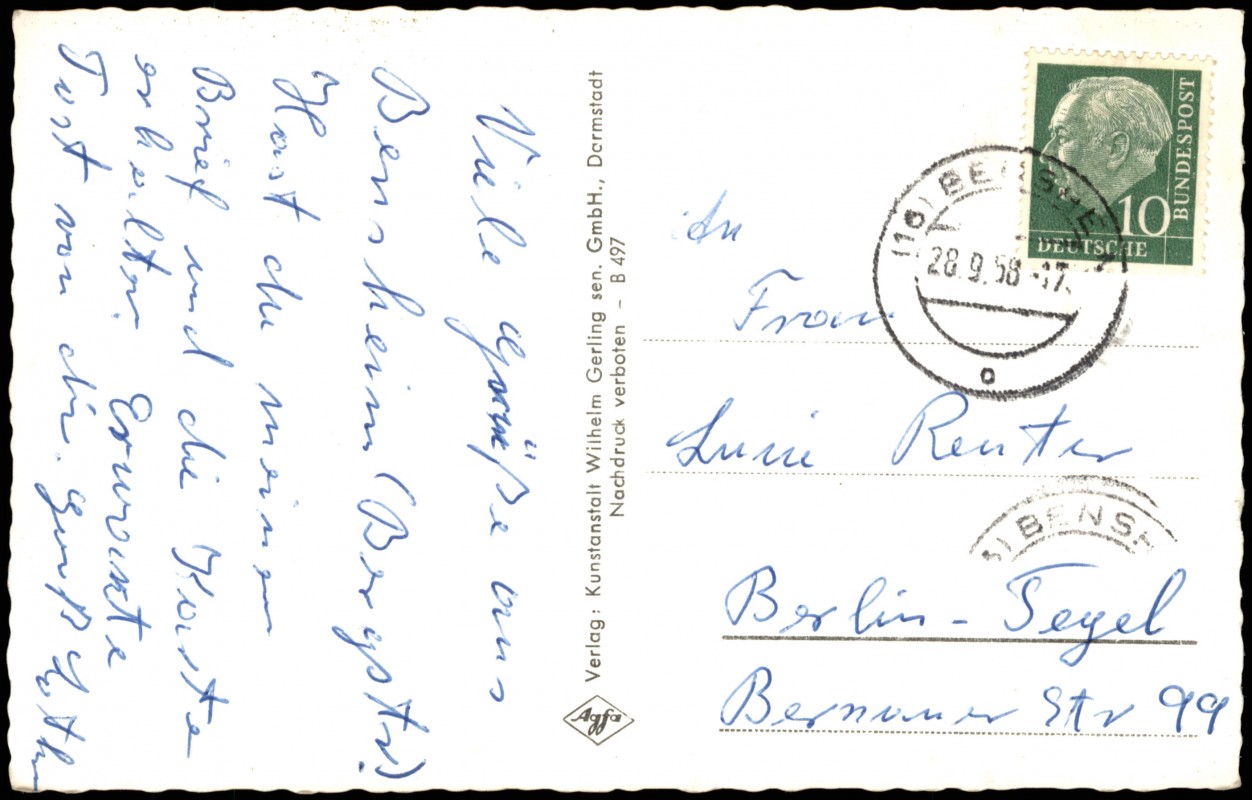 Viele grüße aus
Bensheim (Bergstr.)
Hast du meinen
Brief und die Karte
erhalten. Erwarte
Post von dir. gruß
Verlag: Kunstanstalt Wilhelm Gerling sen. GmbH., Darmstadt
Nachdruck verboten – B 497
Agfa
DEUTSCHE
BUNDESPOST
10
(16) BENSHEIM
28.9.58-17
o
An
Frau
Reutter
BENS
Berlin-Tegel
Bernauer Str 99